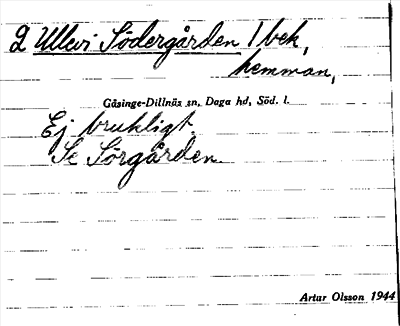 2 Ullevi Södergården 1 bek,
hemman,
Gåsinge-Dillnäs sn, Daga hd, Söd. l.
Ej brukligt.
Se Sörgården.
Artur Olsson 1944